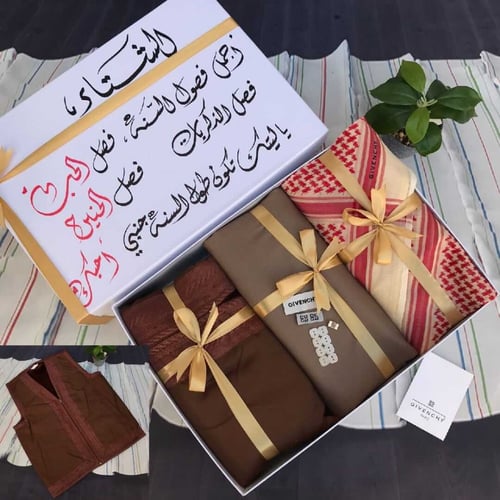 الشتاء،
اجمل فصول السنة، فصل الحب
فصل الذكريات فصل الحنين
ياليتك تكون طول السنة جنبي احبك
GIVENCHY
GIVENCHY
GIVENCHY
PARIS